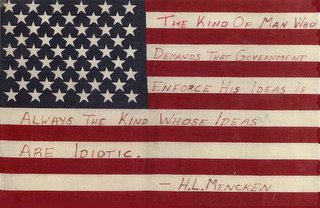 The Kind Of Man Who
Demands That Government
Enforce His Ideas Is
Always The Kind Whose Ideas
Are Idiotic.
— H.L. Mencken